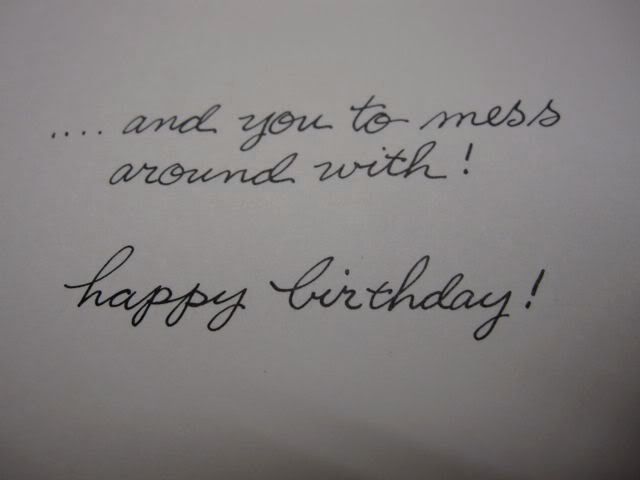 .... and you to mess
around with!
happy birthday!